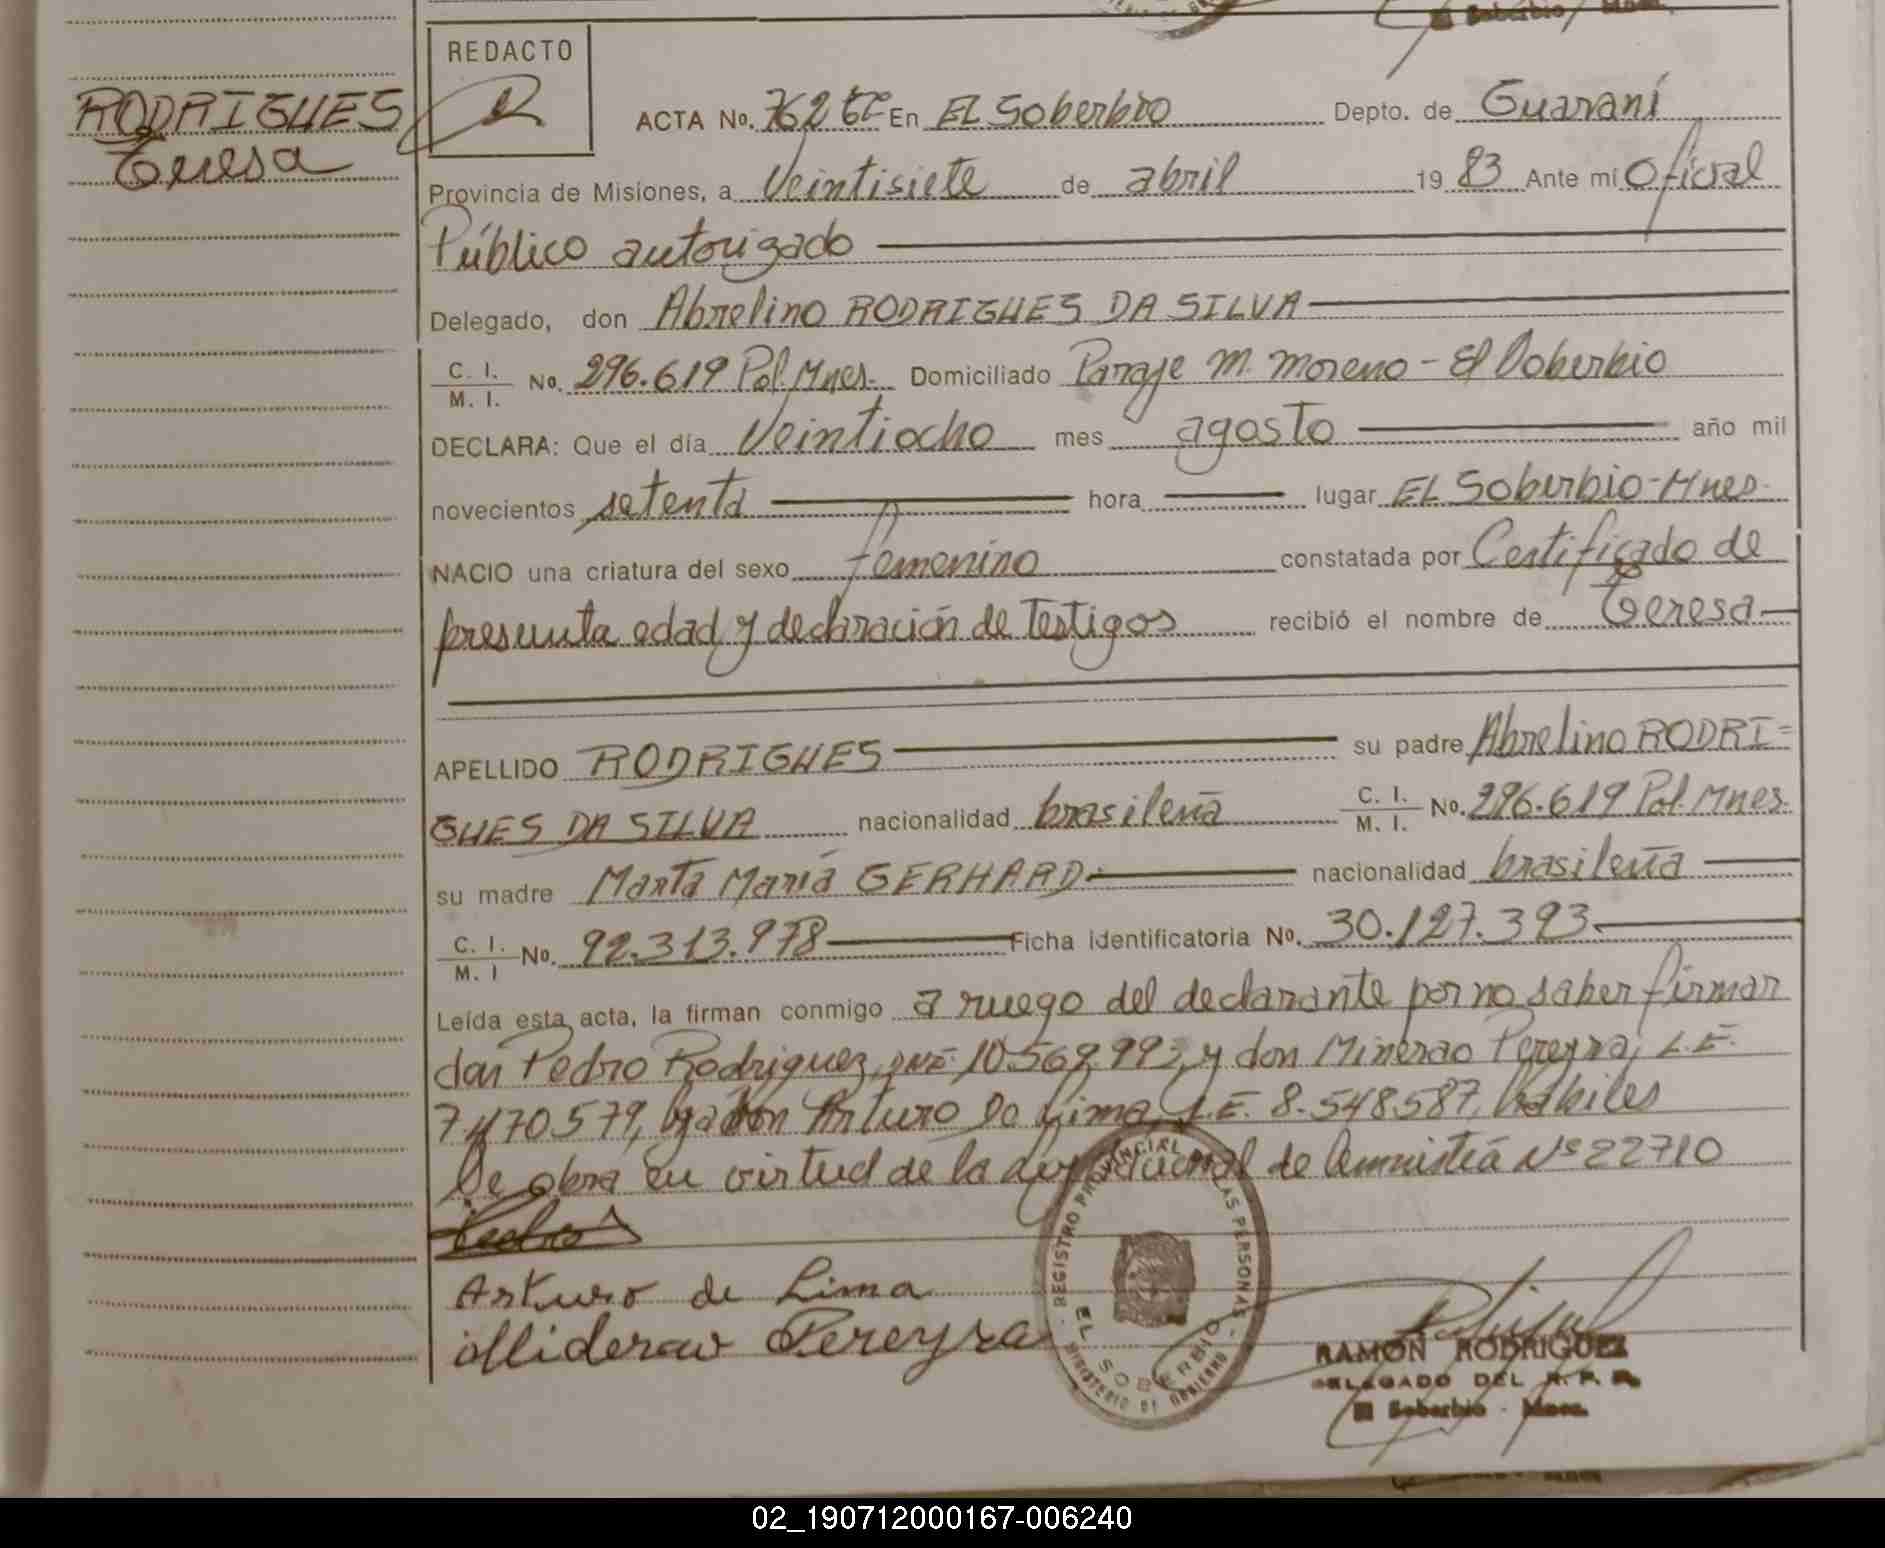 REDACTO
RODRIGUES
Teresa
ACTA No. 762 En EL Soberbio Depto. de Guaraní
Provincia de Misiones, a Veintisiete de abril 19 83 Ante mí Oficial
Público autorizado
Delegado, don Abrelino RODRIGUES DA SILVA
C. I. M. I. No. 296.619 Pol. Mnes. Domiciliado Paraje M. Moreno - El Soberbio
DECLARA: Que el día Veintiocho mes agosto año mil
novecientos setenta hora lugar EL Soberbio-Mnes.
NACIO una criatura del sexo femenino constatada por Certificado de
presunta edad y declaración de Testigos recibió el nombre de Teresa
APELLIDO RODRIGUES su padre Abrelino RODRI=
GUES DA SILVA nacionalidad brasileña C. I. M. I. No. 296.619 Pol. Mnes.
su madre Marta María GERHARD nacionalidad brasileña
C. I. M. I No. 92.313.978 Ficha identificatoria No. 30.127.393
Leída esta acta, la firman conmigo a ruego del declarante por no saber firmar
don Pedro Rodriguez, 10.569.993 y don Pereyra, L.E.
7.470.579, don Arturo de Lima, L.E. 8.548.587, habiles
Se obra en virtud de la ley nacional de Amnistía Nº 22710
Arturo de Lima
Miderau Pereyra
REGISTRO PROVINCIAL DE LAS PERSONAS
EL SOBERBIO
MINISTERIO DE GOBIERNO
RAMON RODRIGUEZ
DELEGADO DEL R. P. P.
El Soberbio - Mnes.
02_190712000167-006240